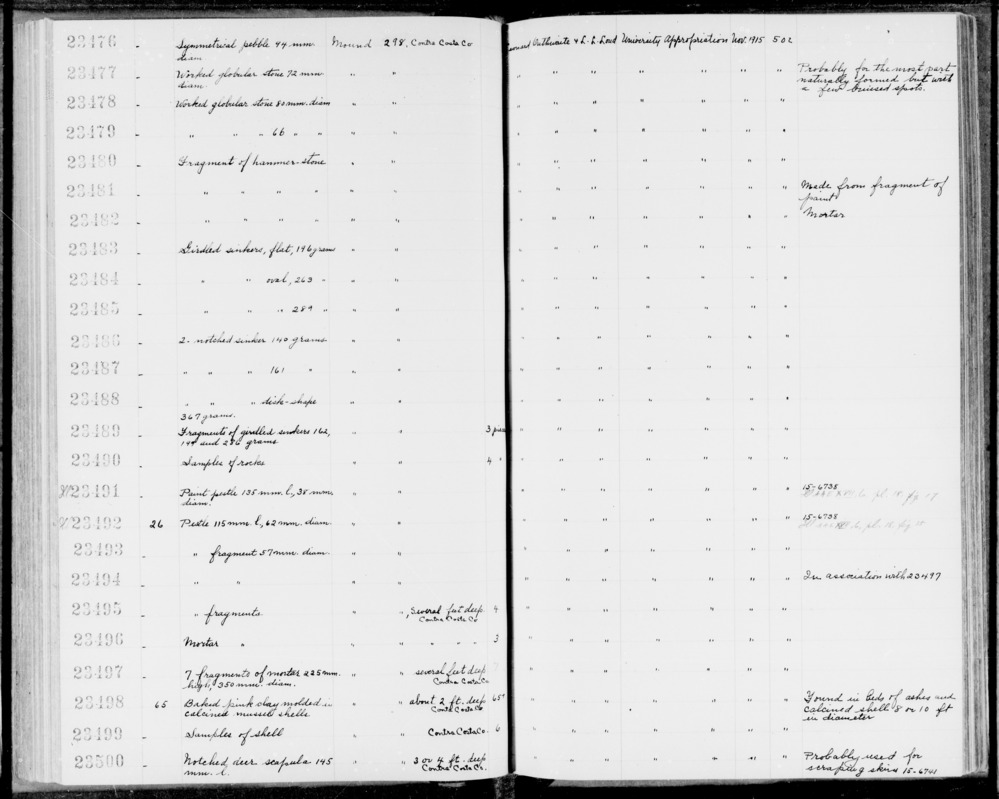 23476 - Symmetrical pebble 44 mm. Mound 298, Contra Costa Co Leonard Outhwaite & L. L. Loud University Appropriation Nov. 1915 502
diam
23477 - Worked globular stone 72 mm. " " " " " " " " Probably for the most part
diam. naturally formed but with
a few bruised spots.
23478 - Worked globular stone 80 mm. diam " " " " " " " "
23479 - " " " 66 " " " " " " " " " "
23480 - Fragment of hammer-stone " " " " " " " "
23481 - " " " " " " " " " " " " " Made from fragment of
paint
23482 - " " " " " " " " " " " " " Mortar
23483 - Girdled sinkers, flat, 196 grams " " " " " " " "
23484 - " " oval, 263 " " " " " " " " "
23485 - " " " 289 " " " " " " " " "
23486 - 2- notched sinker 140 grams " " " " " " " "
23487 - " " " 161 " " " " " " " " "
23488 - " " " disk-shape " " " " " " " "
367 grams.
23489 - Fragments of girdled sinkers 162, " " 3 pieces " " " " " "
144 and 276 grams
23490 - Samples of rocks " " 4 " " " " " " "
23491 - Paint pestle 135 mm. l., 38 mm. " " " " " " " " 15-6738
diam.
23492 26 Pestle 115 mm. l., 62 mm. diam " " " " " " " " 15-6738
23493 - " fragment 57 mm. diam. " " " " " " " "
23494 - " " " " " " " " " " In association with 23497
23495 - " fragments " ", several feet deep 4 " " " " " "
Contra Costa Co
23496 - Mortar " " " " " " 3 " " " " " "
23497 - 7 fragments of mortar 225 mm. " " several feet deep " " " " " "
high, 350 mm. diam. Contra Costa Co
23498 65 Baked pink clay molded in " " about 2 ft. deep 65 " " " " " " Found in beds of ashes and
calcined mussel shells Contra Costa Co calcined shell 8 or 10 ft
in diameter
23499 - Samples of shell Contra Costa Co. 6 " " " " " "
23500 - Notched deer scapula 145 " " 3 or 4 ft. deep " " " " " " Probably used for
mm. l. Contra Costa Co. scraping skins 15-6741